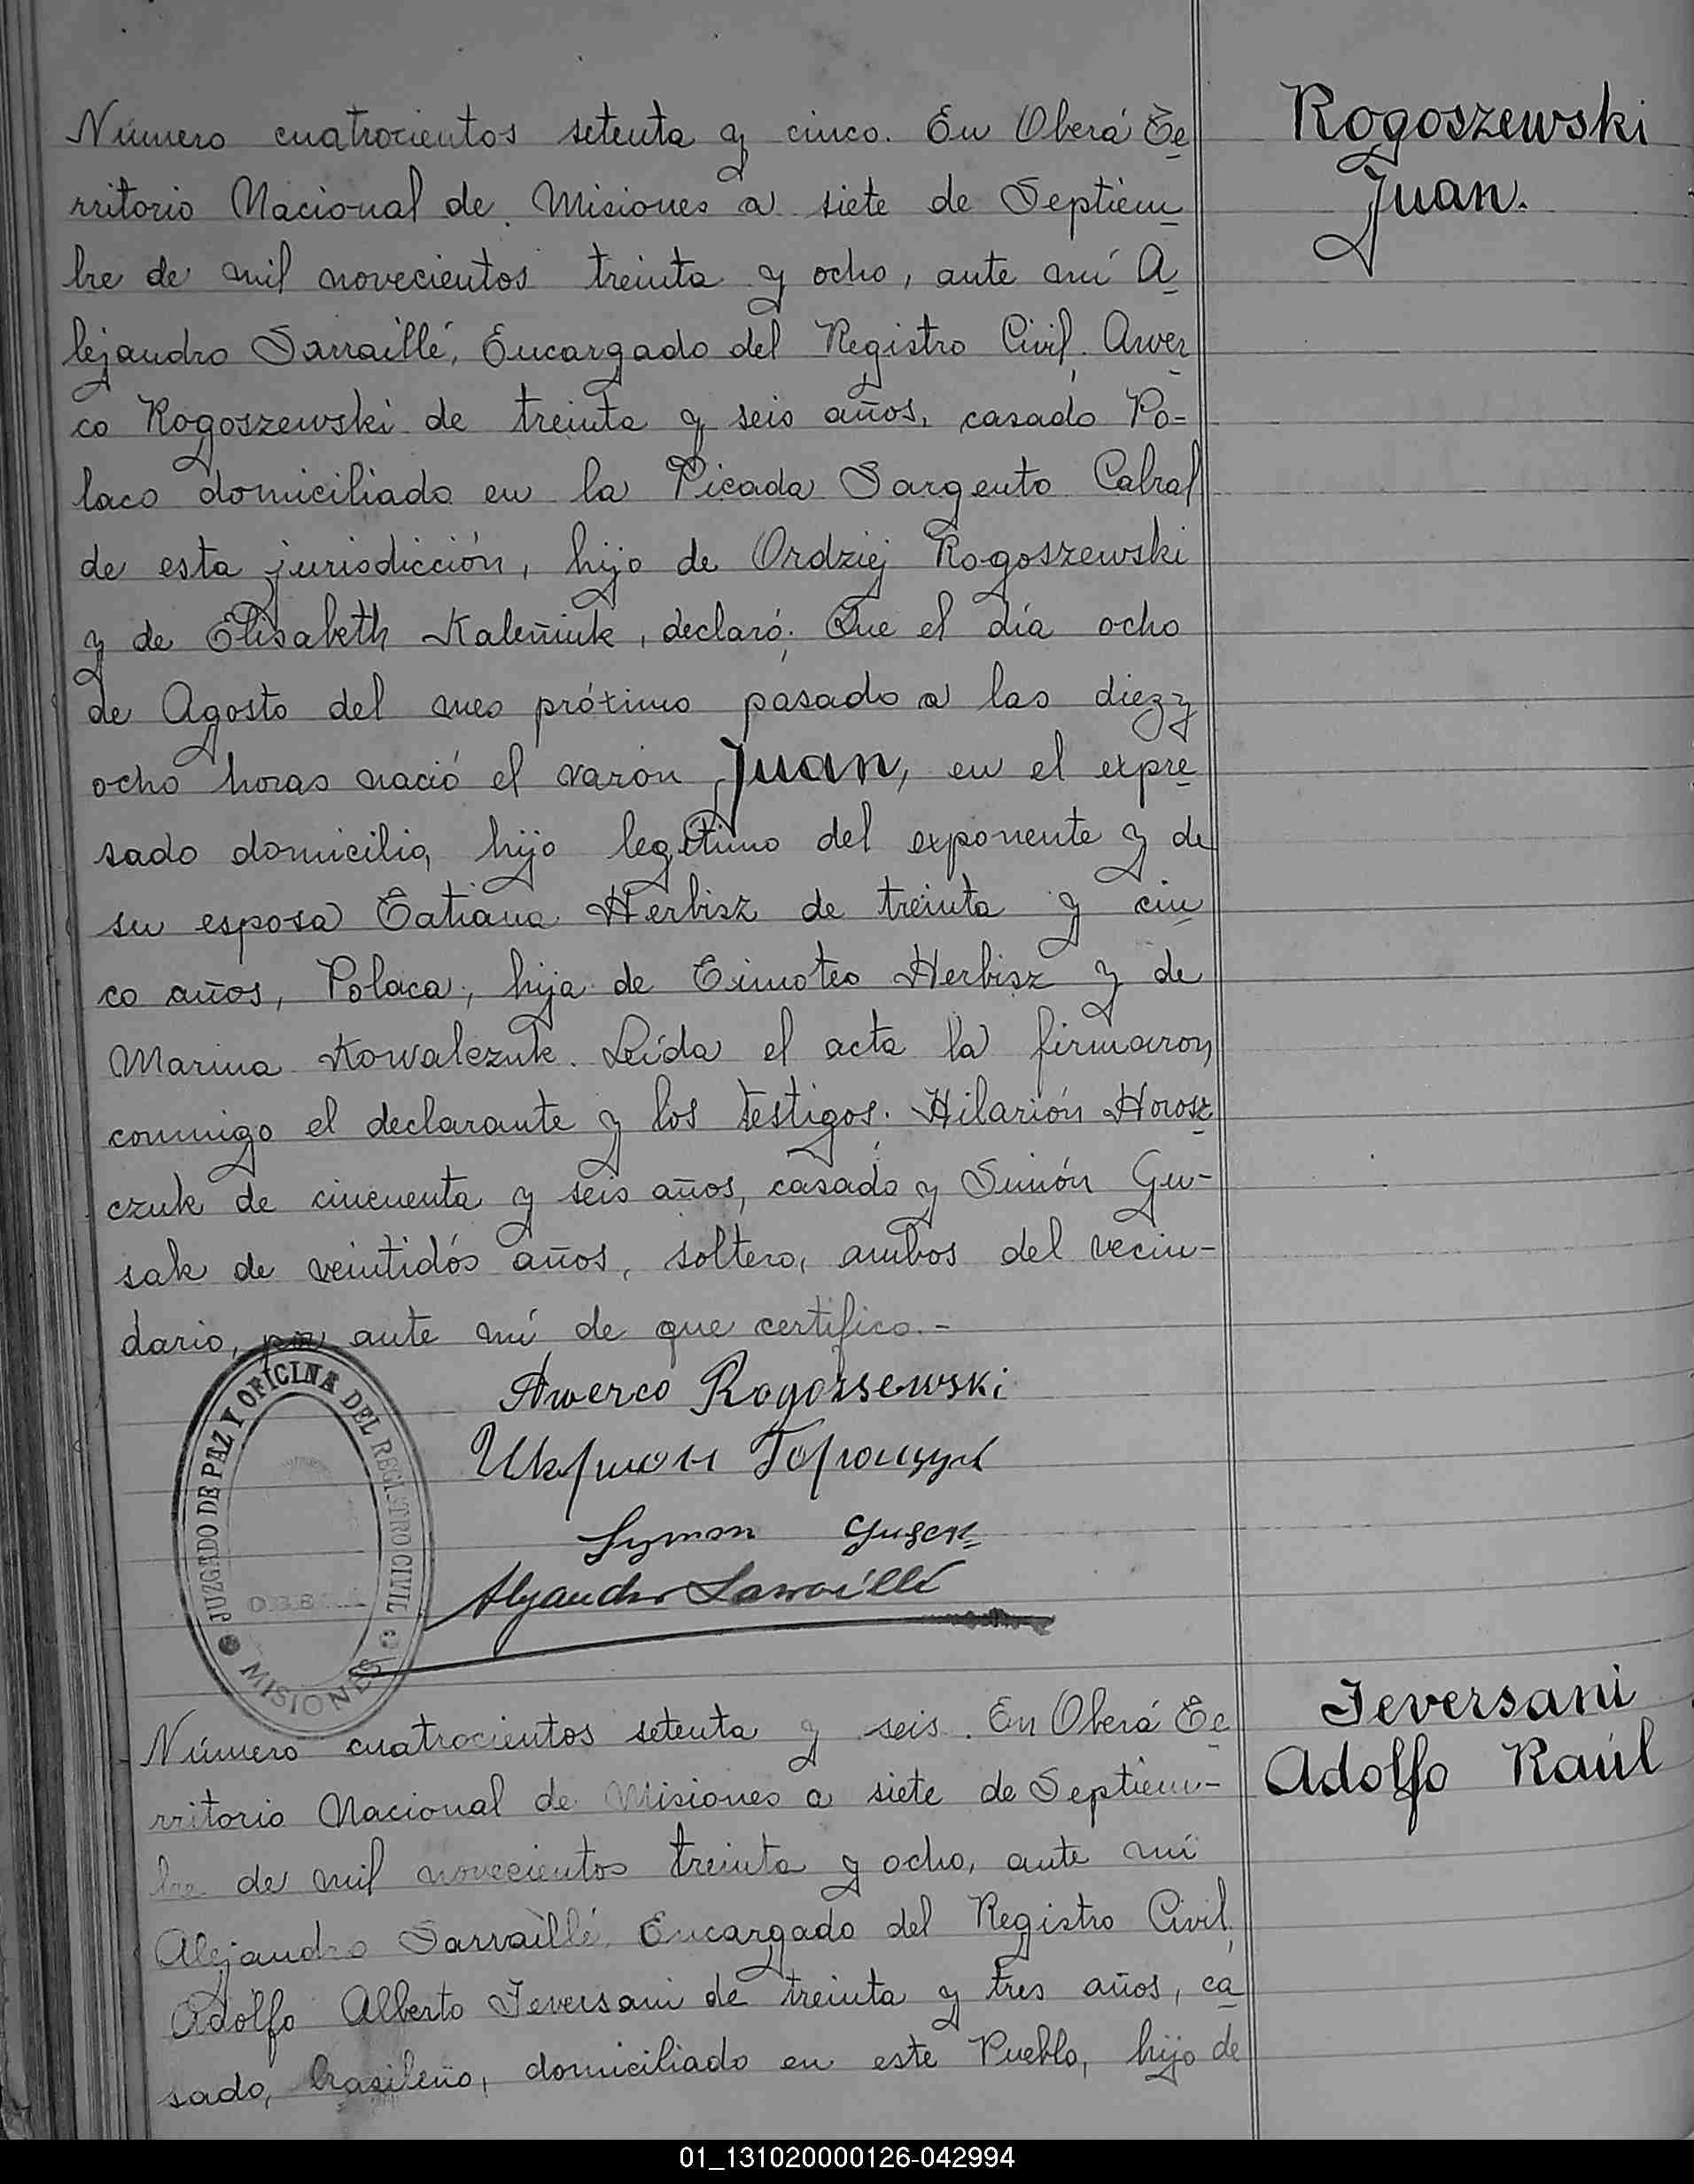 Rogoszewski
Juan.
Número cuatrocientos setenta y cinco. En Oberá Te
rritorio Nacional de Misiones a siete de Septiem
bre de mil novecientos treinta y ocho, ante mí A
lejandro Sarraillé, Encargado del Registro Civil, Awer
co Rogoszewski de treinta y seis años, casado Po=
laco domiciliado en la Picada Sargento Cabral
de esta jurisdicción, hijo de Ordziej Rogoszewski
y de Elisabeth Kaleñiuk, declaró: Que el día ocho
de Agosto del mes próximo pasado a las diez y
ocho horas nació el varón Juan, en el expre
sado domicilio, hijo legítimo del exponente y de
su esposa Tatiana Herbisz de treinta y cin
co años, Polaca, hija de Timoteo Herbisz y de
Marina Kowalczuk. Leída el acta la firmaron
conmigo el declarante y los testigos: Hilarión Horosz
czuk de cincuenta y seis años, casado y Simón Gu-
sak de veintidós años, soltero, ambos del vecin-
dario, por ante mí de que certifico.-
Awerco Rogoszewski
Szymon Gusak
Alejandro Sarraillé
JUZGADO DE PAZ Y OFICINA DEL REGISTRO CIVIL
MISIONES
Jeversani
Adolfo Raúl
Número cuatrocientos setenta y seis. En Oberá Te
rritorio Nacional de Misiones a siete de Septiem-
bre de mil novecientos treinta y ocho, ante mí
Alejandro Sarraillé, Encargado del Registro Civil,
Adolfo Alberto Jeversani de treinta y tres años, ca
sado, brasileño, domiciliado en este Pueblo, hijo de
01_131020000126-042994